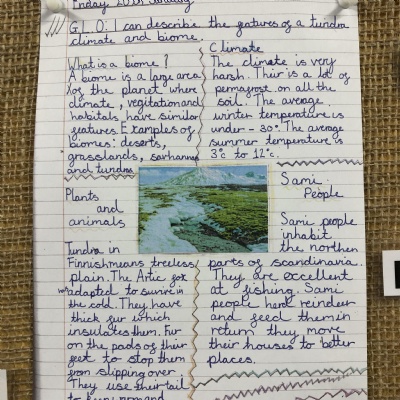 Friday 20th January
G.L.O. I can describe the features of a tundra
climate and biome.
What is a biome?
A biome is a large area
of the planet where
climate, vegitation and
habitats have similar
features. Examples of
biomes: deserts,
grasslands, sarhanna
and tundra
Climate
The climate is very
harsh. Their is a lot of
permafrost on all the
soil. The average
winter temperature is
under -30°. The average
summer temperature is
3°c to 12°c.
Plants
and
animals
Tundra in
Finnish means treeless
plain. The Artic fox
adapted to survive in
the cold. They have
thick fur which
insulates them. Fur
on the pads of their
feet to stop them
from slipping over.
They use their tail
to keep
Sami
People
Sami people
inhabit
the northen
parts of scandinavia.
They are excellent
at fishing. Sami
people herd reindeer
and feed them in
return they move
their houses to better
places.